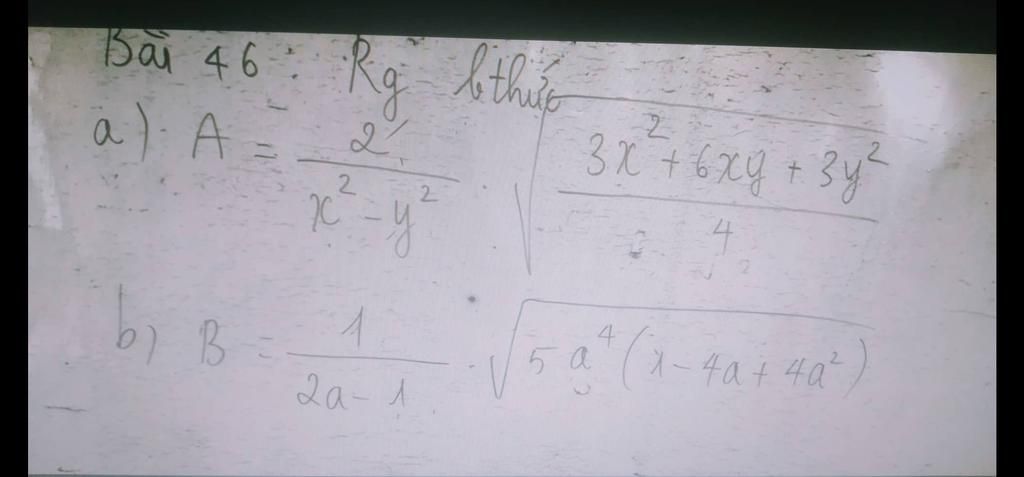 Bài 46 : Rg b thức
a) A = 2 / (x² - y²) . √((3x² + 6xy + 3y²) / 4)
b) B = 1 / (2a - 1) . √(5a⁴(1 - 4a + 4a²))